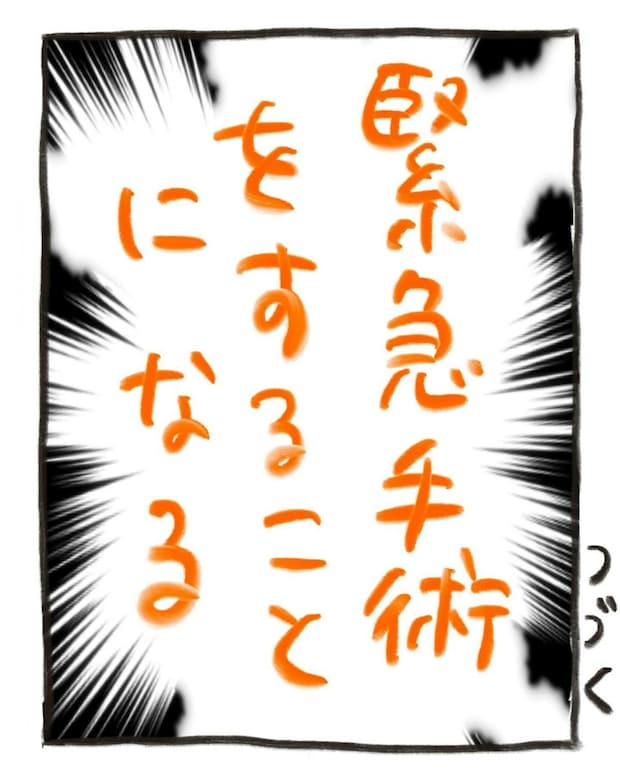 緊急手術
をすること
になる
つづく